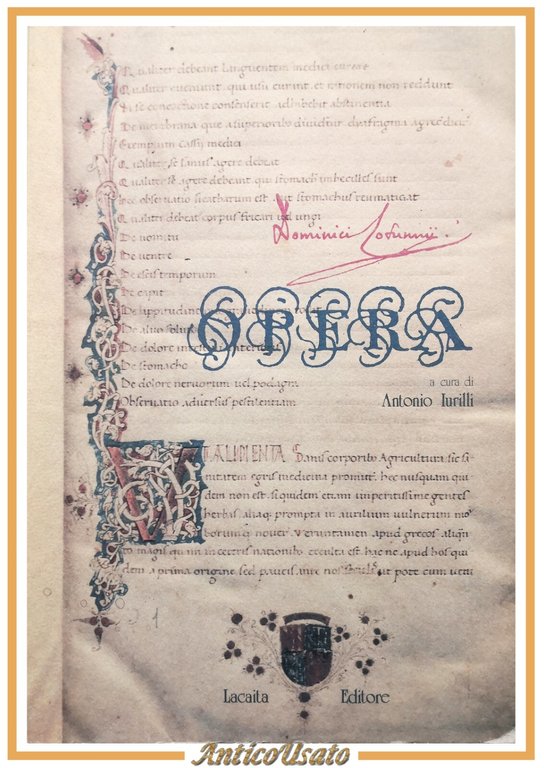 Qualiter debeant languentem medici curare
Qualiter eveniunt qui usu curint, et rationem non reddunt
De membrana que a superioribus dividitur diafragma
Exemplum cassii medici
Qualiter se sanus agere debeat
Qualiter se agere debeant qui stomachi imbecilles sunt
observatio est aut stomachus reumatizat
Qualiter debeat corpus fricari vel ungi
De vomitu
De ventre
De temporum
De capit
De
De alvo
De dolore
De stomacho
De dolore nervorum vel podagra
Observatio adversus pestilentiam
Dominici Cotunnii
OPERA
a cura di
Antonio Iurilli
VT ALIMENTA Sanis corporibus Agricultura sic sa
nitatem egris medicina promittit. hec nusquam qui
dem non est siquidem etiam imperitissime gentes
herbas aliaque prompta in auxilium vulnerum mo
borumque noverunt. Veruntamen apud grecos aliqu
to magis quam in ceteris nationibus exculta est hac ne apud hos qui
dem a prima origine sed paucis ut pote cum
1
Lacaita Editore
AnticoUsato